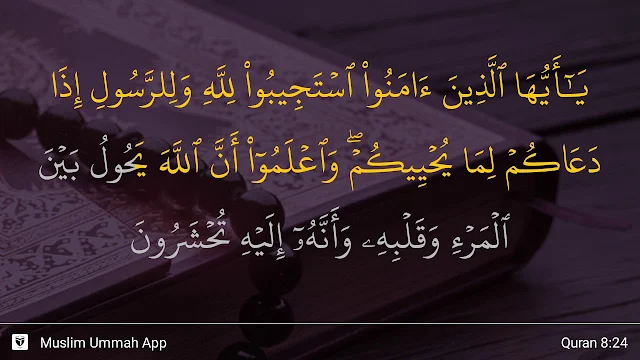 يَـٰٓأَيُّهَا ٱلَّذِينَ ءَامَنُوا۟ ٱسْتَجِيبُوا۟ لِلَّهِ وَلِلرَّسُولِ إِذَا
دَعَاكُمْ لِمَا يُحْيِيكُمْ ۖ وَٱعْلَمُوٓا۟ أَنَّ ٱللَّهَ يَحُولُ بَيْنَ
ٱلْمَرْءِ وَقَلْبِهِۦ وَأَنَّهُۥٓ إِلَيْهِ تُحْشَرُونَ
Muslim Ummah App
Quran 8:24